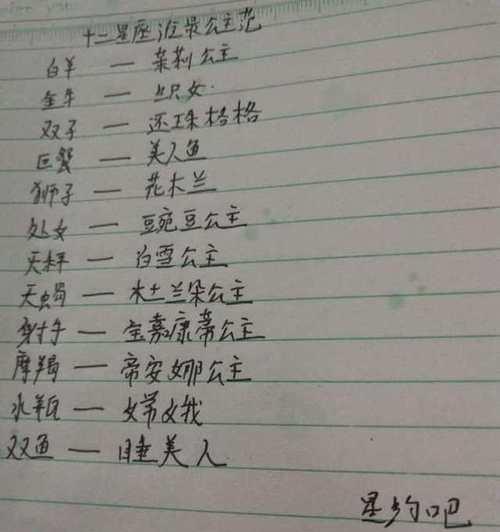 十二星座谁最公主范
白羊 — 茉莉公主
金牛 — 织女
双子 — 还珠格格
巨蟹 — 美人鱼
狮子 — 花木兰
处女 — 豌豆公主
天秤 — 白雪公主
天蝎 — 杜兰朵公主
射手 — 宝嘉康蒂公主
摩羯 — 帝安娜公主
水瓶 — 嫦娥
双鱼 — 睡美人
星约吧